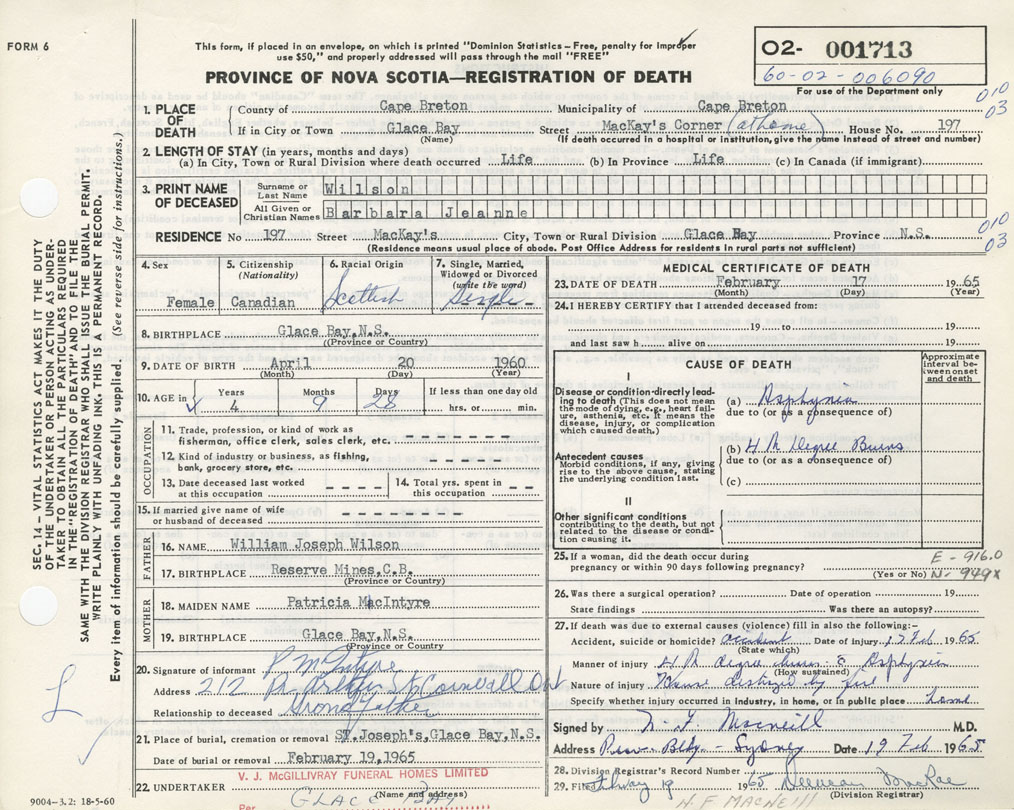 FORM 6
This form, if placed in an envelope, on which is printed "Dominion Statistics – Free, penalty for improper
use $50," and properly addressed will pass through the mail "FREE"
PROVINCE OF NOVA SCOTIA—REGISTRATION OF DEATH
02- 001713
60-02-006090
For use of the Department only
010
03
1. PLACE OF DEATH { County of Cape Breton Municipality of Cape Breton
If in City or Town Glace Bay Street MacKay's Corner (at home) House No. 197
(Name) (If death occurred in a hospital or institution, give the name instead of street and number)
2. LENGTH OF STAY (in years, months and days)
(a) In City, Town or Rural Division where death occurred Life (b) In Province Life (c) In Canada (if immigrant)
3. PRINT NAME OF DECEASED
Surname or Last Name Wilson
All Given or Christian Names Barbara Jeanne
RESIDENCE No 197 Street MacKay's City, Town or Rural Division Glace Bay Province N.S.
010
03
(Residence means usual place of abode. Post Office Address for residents in rural parts not sufficient)
4. Sex Female
5. Citizenship (Nationality) Canadian
6. Racial Origin Scottish
7. Single, Married, Widowed or Divorced (write the word) Single
8. BIRTHPLACE Glace Bay, N.S.
(Province or Country)
9. DATE OF BIRTH April 20 1960
(Month) (Day) (Year)
10. AGE in Years 4 Months 9 Days 28 If less than one day old
hrs. or min.
OCCUPATION
11. Trade, profession, or kind of work as
fisherman, office clerk, sales clerk, etc. - - - - - - - -
12. Kind of industry or business, as fishing,
bank, grocery store, etc. - - - - - - - -
13. Date deceased last worked
at this occupation - - - -
14. Total yrs. spent in
this occupation - - -
15. If married give name of wife
or husband of deceased
FATHER
16. NAME William Joseph Wilson
17. BIRTHPLACE Reserve Mines, C.B.
(Province or Country)
MOTHER
18. MAIDEN NAME Patricia MacIntyre
19. BIRTHPLACE Glace Bay, N.S.
(Province or Country)
20. Signature of informant P McIntyre
Address 212 St Cornwall Ont
Relationship to deceased Grand father
21. Place of burial, cremation or removal ST. Joseph's, Glace Bay, N.S.
Date of burial or removal February 19, 1965
V. J. McGILLIVRAY FUNERAL HOMES LIMITED
22. UNDERTAKER
(Name and address)
Per GLACE BAY
9004-3.2: 18-5-60
MEDICAL CERTIFICATE OF DEATH
23. DATE OF DEATH February 17 1965
(Month) (Day) (Year)
24. I HEREBY CERTIFY that I attended deceased from:
19 to 19
and last saw h alive on 19
CAUSE OF DEATH
Approximate interval between onset and death
I
Disease or condition directly leading to death (This does not mean the mode of dying, e.g., heart failure, asthenia, etc. It means the disease, injury, or complication which caused death.)
(a) Asphyxia
due to (or as a consequence of)
Antecedent causes
Morbid conditions, if any, giving rise to the above cause, stating the underlying condition last.
(b) 4 th Degree Burns
due to (or as a consequence of)
(c)
II
Other significant conditions
contributing to the death, but not related to the disease or condition causing it.
25. If a woman, did the death occur during
pregnancy or within 90 days following pregnancy?
(Yes or No)
E - 916.0
N - 949x
26. Was there a surgical operation? Date of operation 19
State findings Was there an autopsy?
27. If death was due to external causes (violence) fill in also the following:-
Accident, suicide or homicide? accident Date of injury 17 Feb 1965
(State which)
Manner of injury 4 th degree burns & Asphyxia
(How sustained)
Nature of injury House destroyed by fire
Specify whether injury occurred in industry, in home, or in public place home
Signed by N F Macneill M.D.
Address Bldg - Sydney Date 19 Feb 1965
28. Division Registrar's Record Number
29. Filed February 19 1965 MacRae
(Division Registrar)
N. F MACNEILL
SEC. 14 – VITAL STATISTICS ACT MAKES IT THE DUTY
OF THE UNDERTAKER OR PERSON ACTING AS UNDER-
TAKER TO OBTAIN ALL THE PARTICULARS REQUIRED
IN THE "REGISTRATION OF DEATH" AND TO FILE THE
SAME WITH THE DIVISION REGISTRAR WHO SHALL ISSUE THE BURIAL PERMIT.
WRITE PLAINLY WITH UNFADING INK. THIS IS A PERMANENT RECORD.
Every item of information should be carefully supplied. (See reverse side for instructions.)